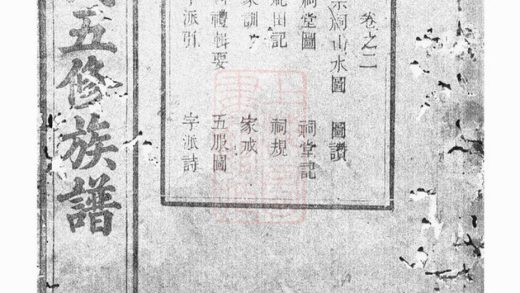 卷之二
宗祠山水圖 圖讚
祠堂圖 祠堂記
祀田記 祠規
家訓 家戒
禮輯要 五服圖
字派引 字派詩
五修族譜